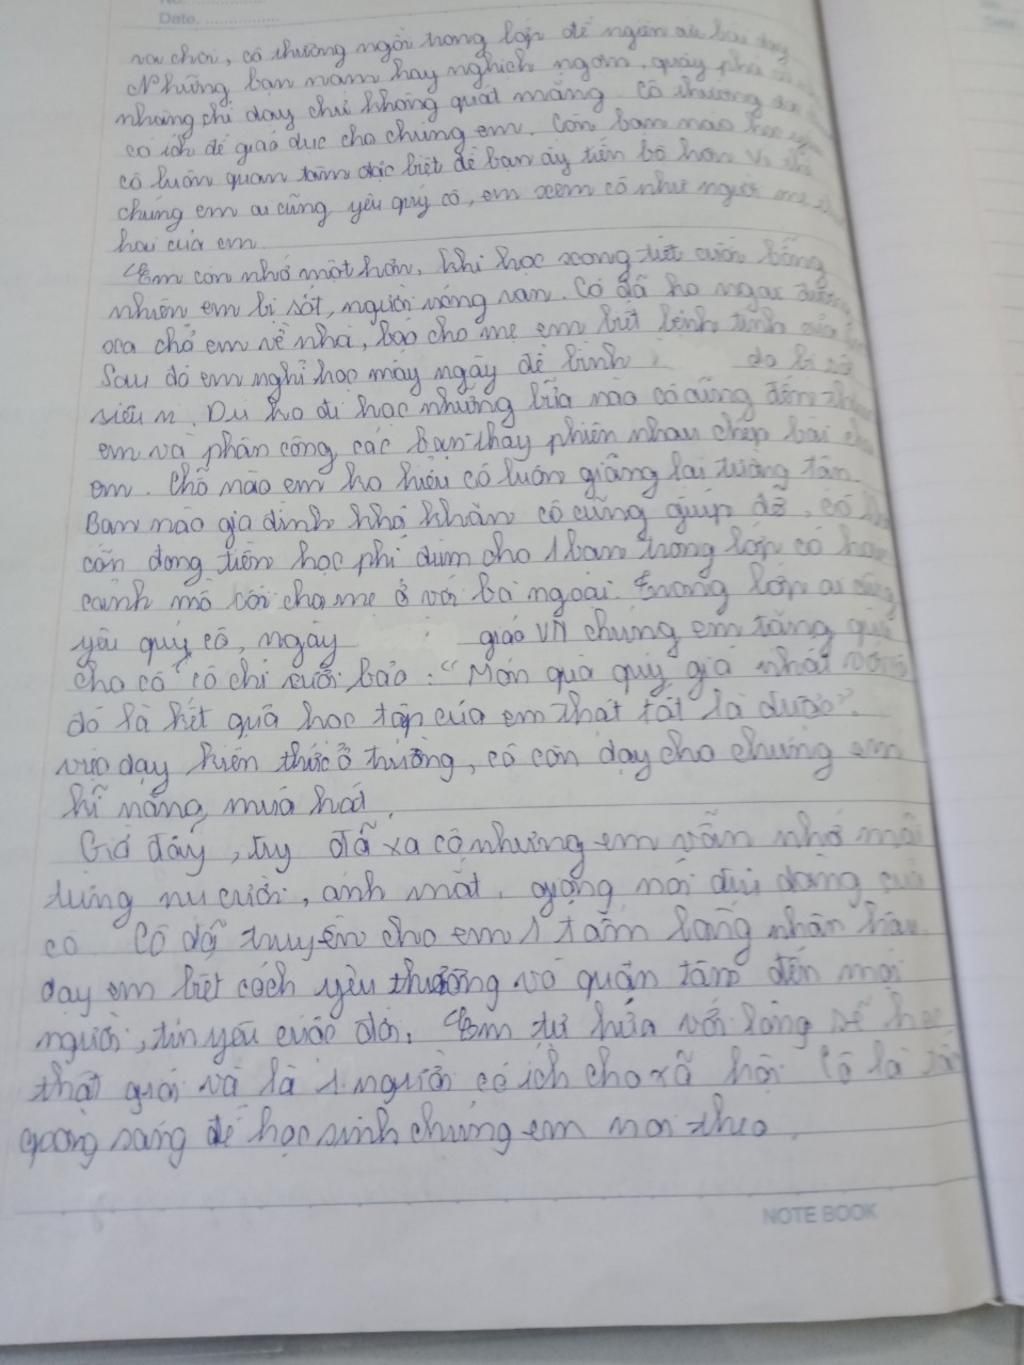 No.
Date.
ra chơi, cô thường ngồi trong lớp để ngăn
Những bạn nam hay nghịch ngợm, quậy phá
nhưng chỉ dạy chứ không quát mắng. Cô thường
có ích để giáo dục cho chúng em. Còn bạn nào học
cô luôn quan tâm đặc biệt để bạn ấy tiến bộ hơn
chúng em ai cũng yêu quý cô, em xem cô như người mẹ
hai của em
Em còn nhớ một hôm, khi học xong tiết cuối bỗng
nhiên em bị sốt, người nóng ran. Cô đã
chở em về nhà, báo cho mẹ em biết bệnh tình của
Sau đó em nghỉ học mấy ngày để bình do bị
siêu vi. Dù ko đi học nhưng bữa nào cô cũng đến
em và phân công các bạn thay phiên nhau chép bài cho
em. Chỗ nào em ko hiểu cô luôn giảng lại tường tận.
Bạn nào gia đình khó khăn cô cũng giúp đỡ, cô
còn đóng tiền học phí dùm cho 1 bạn trong lớp có hoàn
cảnh mồ côi cha mẹ ở với bà ngoại. Trong lớp ai cũng
yêu quý cô, ngày giáo VN chúng em tặng quà
cho cô cô chỉ cười bảo: "Món quà quý giá nhất với cô
đó là kết quả học tập của em thật tốt là được".
dạy kiến thức ở trường, cô còn dạy cho chúng em
kĩ năng, múa hát.
Giờ đây, tuy đã xa cô nhưng em vẫn nhớ mãi
từng nụ cười, ánh mắt, giọng nói dịu dàng của
cô Cô đã truyền cho em 1 tấm lòng nhân hậu
dạy em biết cách yêu thương và quan tâm đến mọi
người, tin yêu cuộc đời. Em tự hứa với lòng sẽ học
thật giỏi và là 1 người có ích cho xã hội Cô là tấm
gương sáng để học sinh chúng em noi theo.
NOTE BOOK